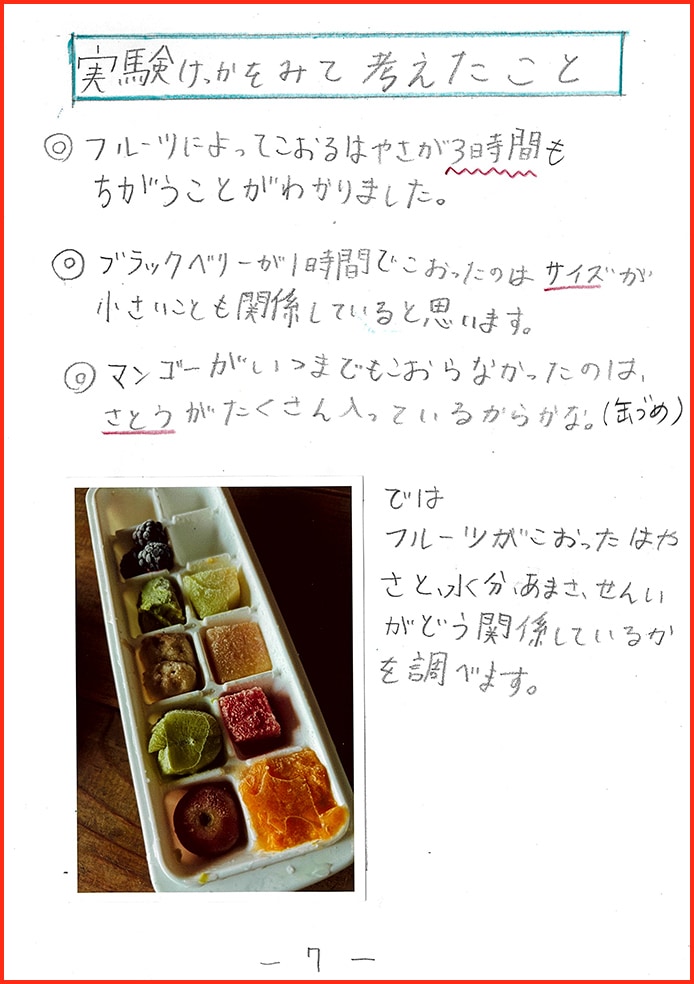 実験けっかをみて考えたこと
◎ フルーツによってこおるはやさが3時間も
ちがうことがわかりました。
◎ ブラックベリーが1時間でこおったのはサイズが
小さいことも関係していると思います。
◎ マンゴーがいつまでもこおらなかったのは、
さとうがたくさん入っているからかな。(缶づめ)
では
フルーツがこおったはや
さと、水分、あまさ、せんい
がどう関係しているか
を調べます。
- 7 -